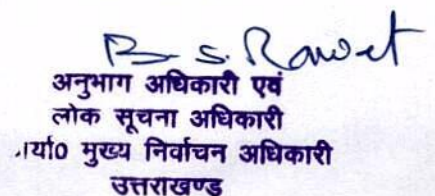 B. S. Rawat
अनुभाग अधिकारी एवं
लोक सूचना अधिकारी
र्या0 मुख्य निर्वाचन अधिकारी
उत्तराखण्ड